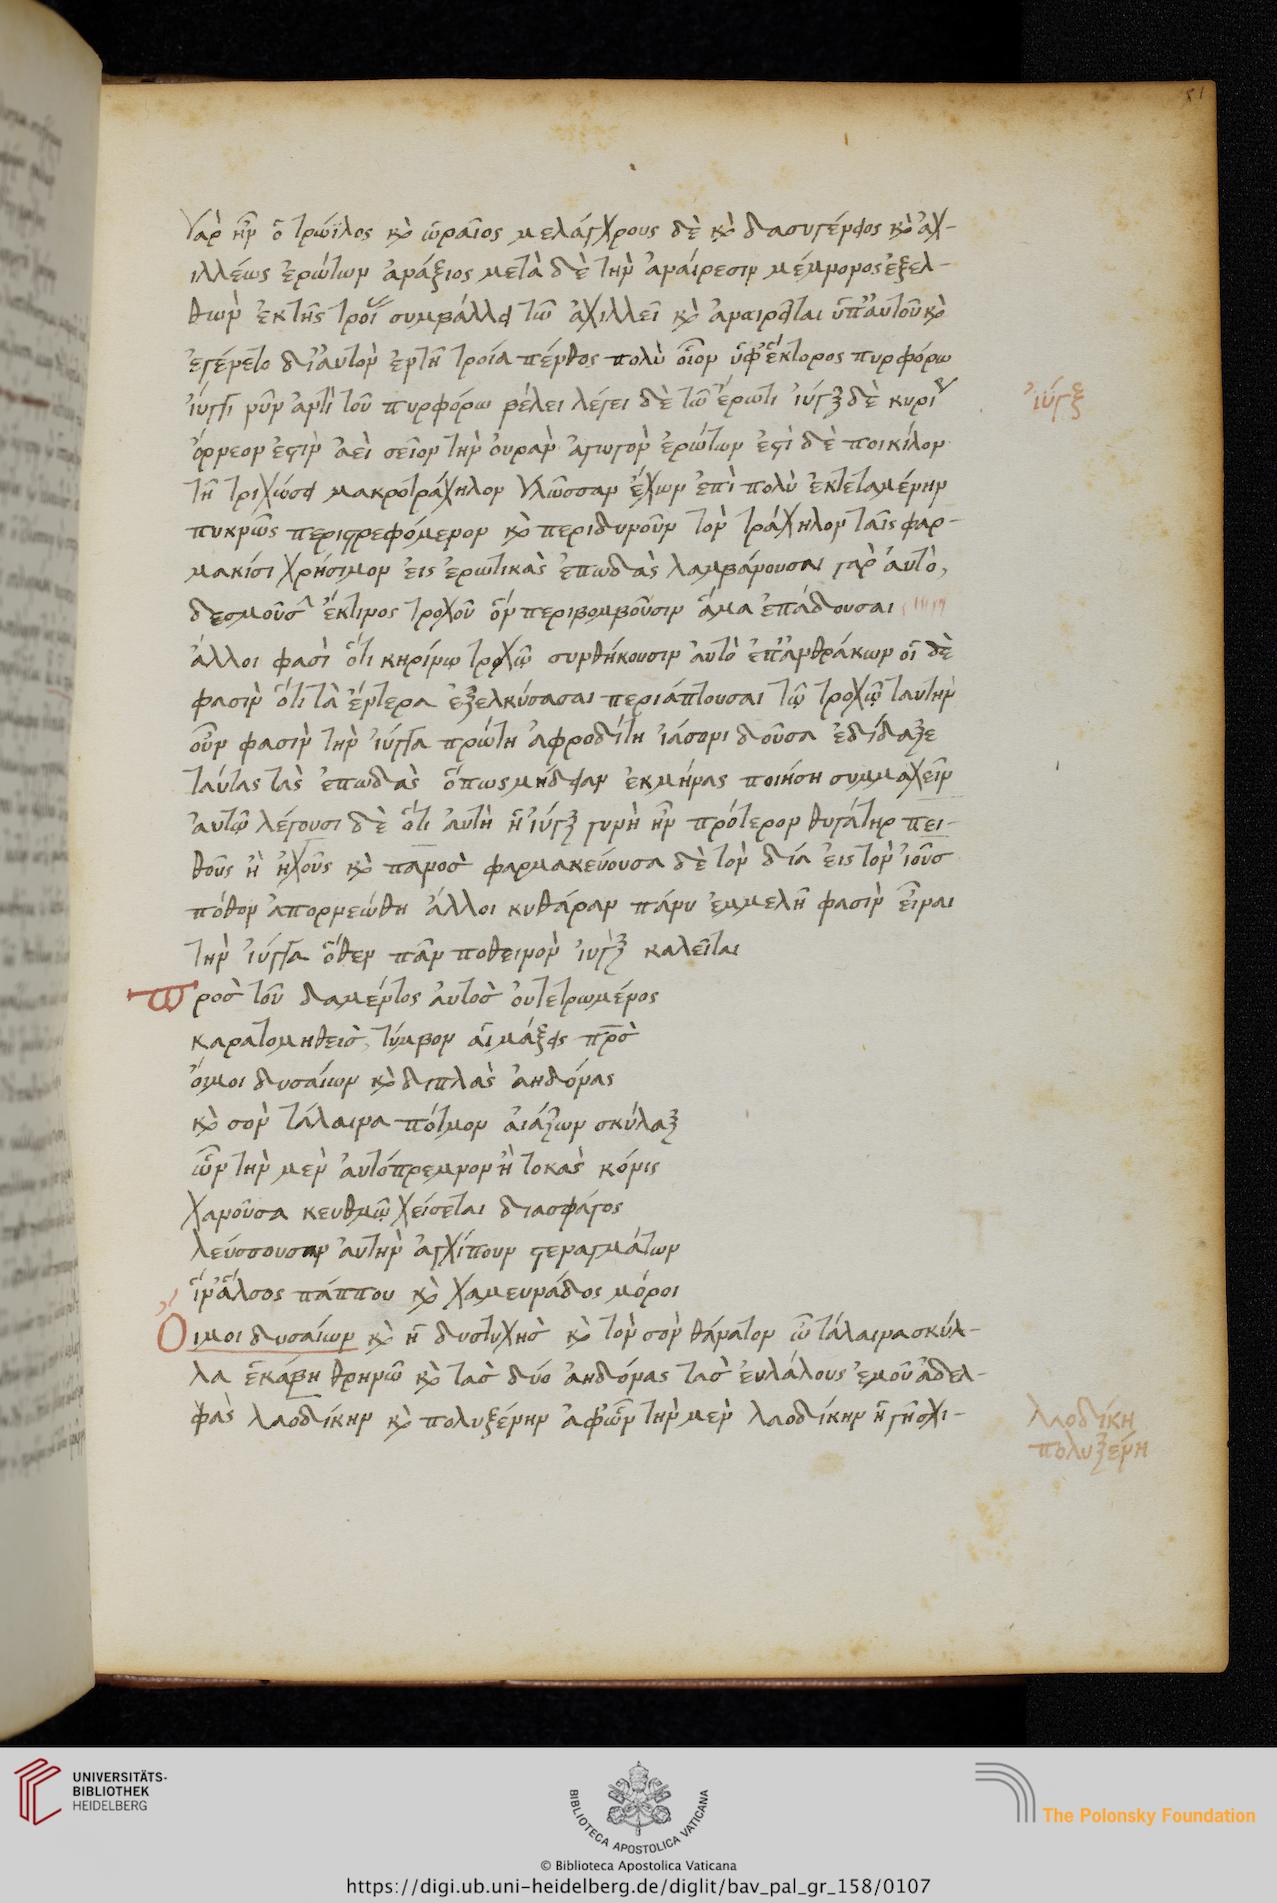 51
γαρ ἦν ὁ τρωΐλος κὸ ὡραῖος μελάγχρους δὲ κὸ δασυγένφος κὸ ἀχ-
ιλλέως ἐρώτων ἀνάξιος μετὰ δὲ τὴν ἀναίρεσιν μέμνονος ἐξελ-
θὼν ἐκ τῆς τροί συμβάλλει τῶ ἀχιλλεῖ κὸ ἀναιρεῖται ὑπ' αὐτοῦ κὸ
ἐγένετο δι' αὐτὸν ἐν τῆ τροία πένθος πολὺ οἷον ὑφ' ἕκτορος πυρφόρω
ἰύγγι νῦν ἀντὶ τοῦ πυρφόρω βέλει λέγει δὲ τῶ ἔρωτι ἰύγξ δὲ κυρί
ἰύγξ
ὄρνεον ἐστὶν ἀεὶ σεῖον τὴν οὐρὰν ἀγωγὸν ἐρώτων ἐστὶ δὲ ποικίλον
τῆ τριχώσει μακροτράχηλον γλῶσσαν ἔχων ἐπὶ πολὺ ἐκτεταμένην
πυκνῶς περιστρεφόμενον κὸ περιδινοῦν τὸν τράχηλον ταῖς φαρ-
μακίσι χρήσιμον εἰς ἐρωτικὰς ἐπωδὰς λαμβάνουσαι γὰρ αὐτὸ,
δεσμοῦσ ἔκ τινος τροχοῦ ὃν περιβομβοῦσιν ἅμα ἐπάδουσαι
ἄλλοι φασὶ ὅτι κηρίνω τροχῷ συντήκουσιν αὐτὸ ἐπ' ἀνθράκων οἱ δὲ
φασὶν ὅτι τὰ ἔντερα ἐξελκύσασαι περιάπτουσαι τῷ τροχῷ ταύτην
οὖν φασὶν τὴν ἰύγγα πρώτη ἀφροδίτη ἰάσονι δοῦσα ἐδίδαξε
ταύτας τὰς ἐπωδὰς ὅπως μήδειαν ἐκμήνας ποιήση συμμαχεῖν
αὐτῷ λέγουσι δὲ ὅτι αὐτὴ ἡ ἰύγξ γυνὴ ἦν πρότερον θυγάτηρ πει-
θοῦς ἢ ἠχοῦς κὸ πανοσ φαρμακεύουσα δὲ τὸν δία εἰς τὸν ἰοῦσ
πόθον ἀπορνεώθη ἄλλοι κιθάραν πάνυ ἐμμελῆ φασὶν εἶναι
τὴν ἰύγγα ὅθεν πᾶν ποθεινὸν ἰυγξ καλεῖται
Προσ τοῦ δαμέντος αὐτοσ οὐ τετρωμένος
καρατομηθεισ, τύμβον αἱμάξεις πρσ
ὄιμοι δυσαίων κὸ διπλὰς ἀηδόνας
κὸ σὸν τάλαινα πότμον αἰάζων σκύλαξ
ὧν τὴν μὲν αὐτόπρεμνον ἢ τοκὰς κόνις
χανοῦσα κευθμῷ χείσεται διασφάγος
λεύσσουσαν αὐτὴν ἀγχίπουν στεναγμάτων
ἵν' ἄλσος πάππου κὸ χαμευνάδος μόροι
Ὄιμοι δυσαίων κὸ ἡ δυστυχὴσ κὸ τὸν σὸν θάνατον ὦ τάλαινα σκύλ-
λα ἑκάβη θρηνῶ κὸ τὰσ δύο ἀηδόνας τὰσ εὐλάλους ἐμοῦ ἀδελ-
φὰς λαοδίκην κὸ πολυξένην ἀφ' ὧν τὴν μὲν λαοδίκην ἡ γῆ σχι-
λαοδίκη
πολυξένη
UNIVERSITÄTS-
BIBLIOTHEK
HEIDELBERG
BIBLIOTECA APOSTOLICA VATICANA
The Polonsky Foundation
© Biblioteca Apostolica Vaticana
https://digi.ub.uni-heidelberg.de/diglit/bav_pal_gr_158/0107